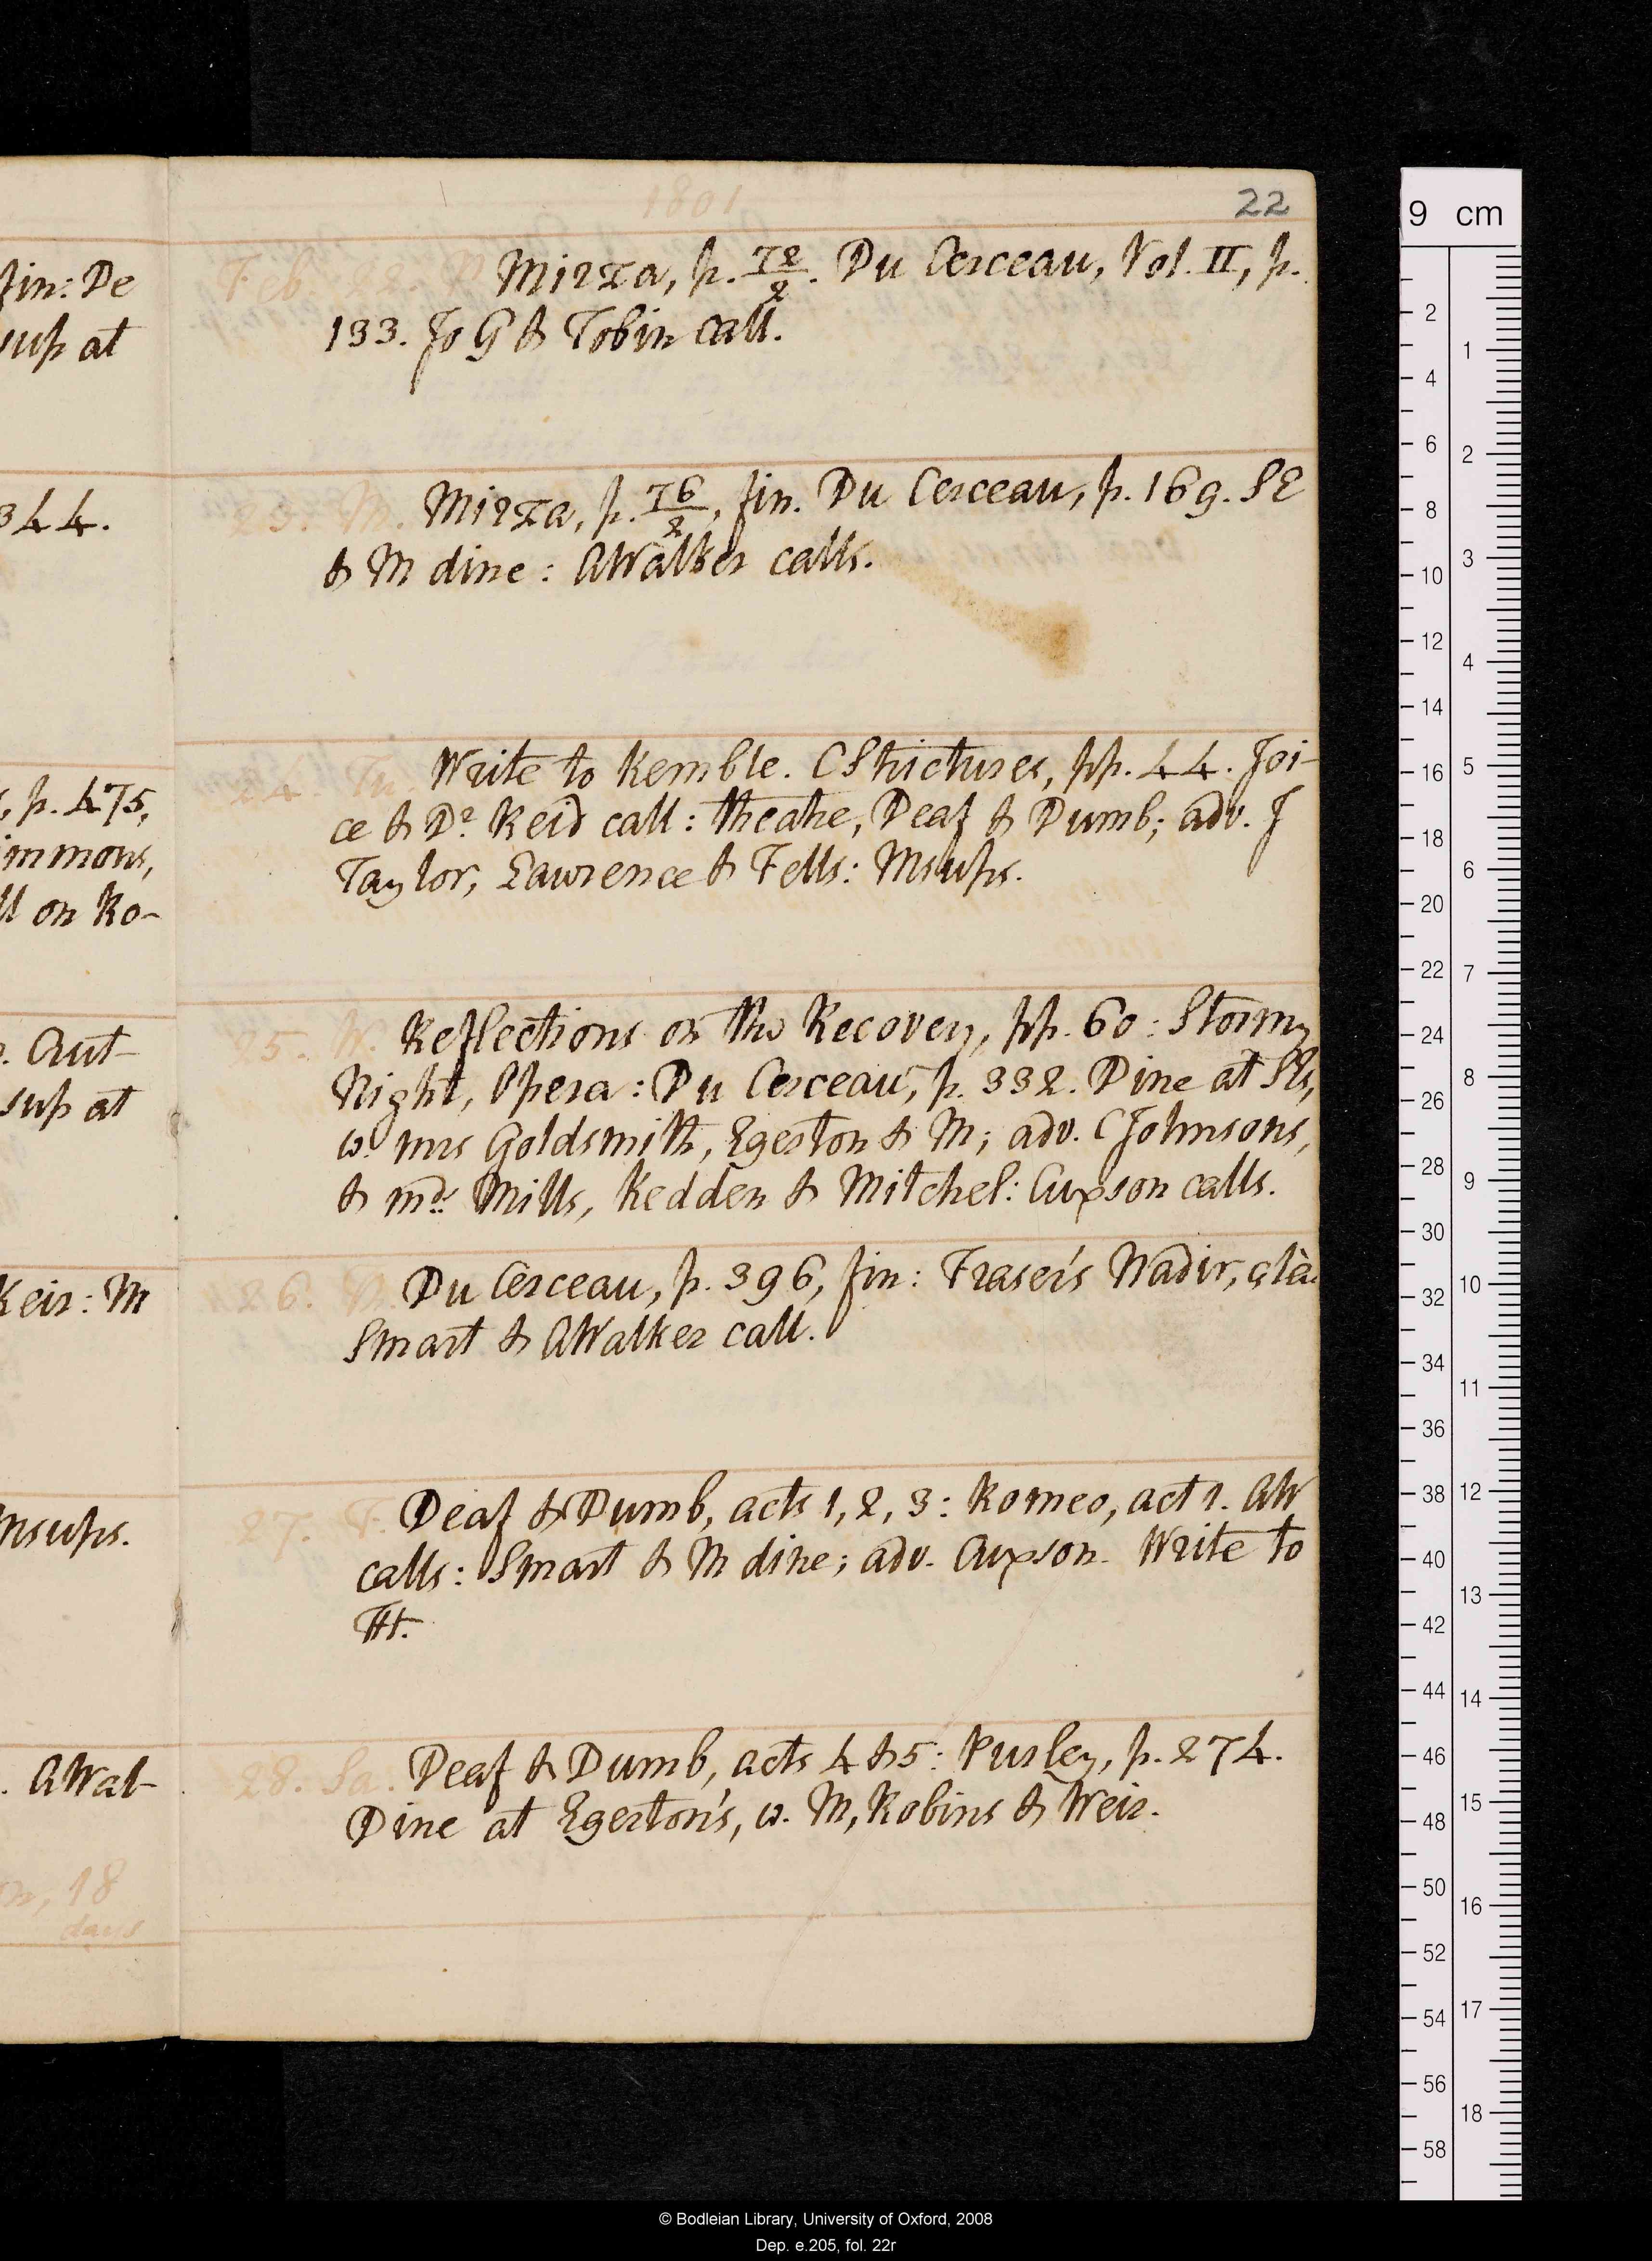 1801
22
Feb. 22. Mirza, p. 72/2. Du Cerceau, Vol. II, p.
133. Jo G & Tobin call.
23. M. Mirza, p. 76/2, fin. Du Cerceau, p. 169. SE
& M dine: AWalker calls.
24. Tu. Write to Kemble. C Strictures, pp. 44. Joi-
ce & Dr Reid call: theatre, Deaf & Dumb; adv. J
Taylor, Lawrence & Fells: M sups.
25. W. Reflections on the Recovery, pp. 60: Stormy
Night, Opera: Du Cerceau, p. 332. Dine at
w. mrs Goldsmith, Egerton & M; adv. CJohnsons,
& mds Mills, Kedden & Mitchel: Cuxson calls.
26. Du Cerceau, p. 396, fin: Fraser's Nadir, çà là.
Smart & AWalker call.
27. F. Deaf & Dumb, acts 1, 2, 3: Romeo, act 1. AW
calls: Smart & M dine; adv. Cuxson. Write to
TH.
28. Sa. Deaf & Dumb, acts 4 & 5: Purley, p. 274.
Dine at Egerton's, w. M, Robins & Weir.
fin: De
sup at
344.
, p. 475,
immons,
ll on Ro-
. Aut-
sup at
Keir: M
Msups.
. AWal-
18
days
9 cm
2
4
6
8
10
12
14
16
18
20
22
24
26
28
30
32
34
36
38
40
42
44
46
48
50
52
54
56
58
1
2
3
4
5
6
7
8
9
10
11
12
13
14
15
16
17
18
© Bodleian Library, University of Oxford, 2008
Dep. e.205, fol. 22r